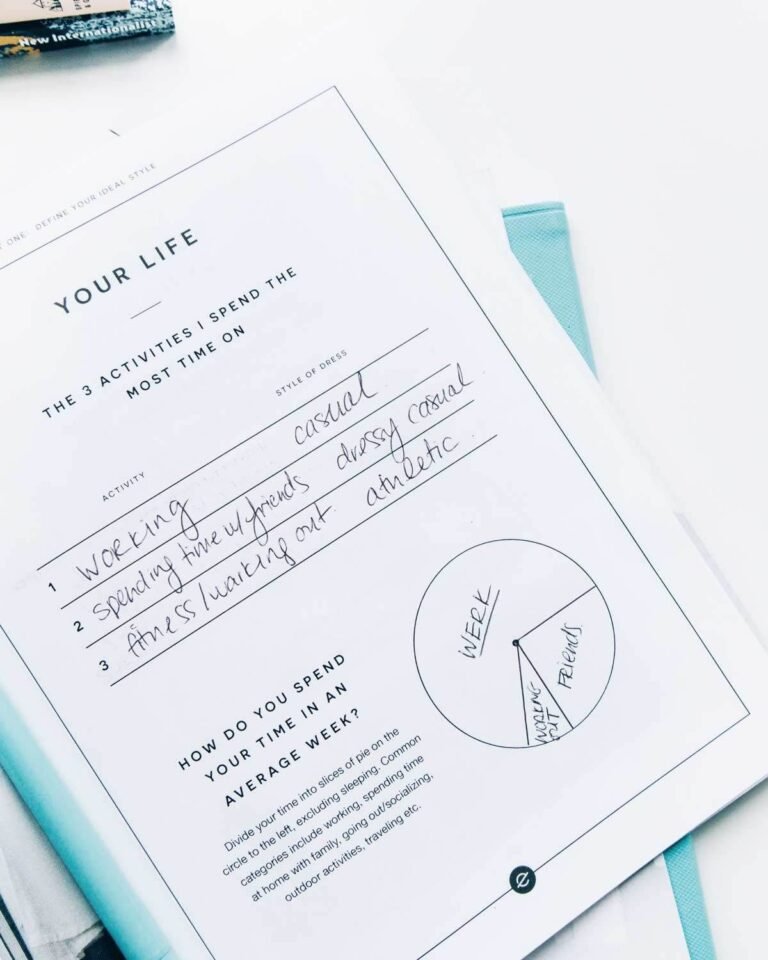 New Internationalist
ONE: DEFINE YOUR IDEAL STYLE
YOUR LIFE
THE 3 ACTIVITIES I SPEND THE
MOST TIME ON
ACTIVITY STYLE OF DRESS
1 WORKING casual
2 spending time w/ friends dressy casual
3 fitness/working out athletic
WERK
Friends
WORKING
OUT
HOW DO YOU SPEND
YOUR TIME IN AN
AVERAGE WEEK?
Divide your time into slices of pie on the
circle to the left, excluding sleeping. Common
categories include working, spending time
at home with family, going out/socializing,
outdoor activities, traveling etc.
e